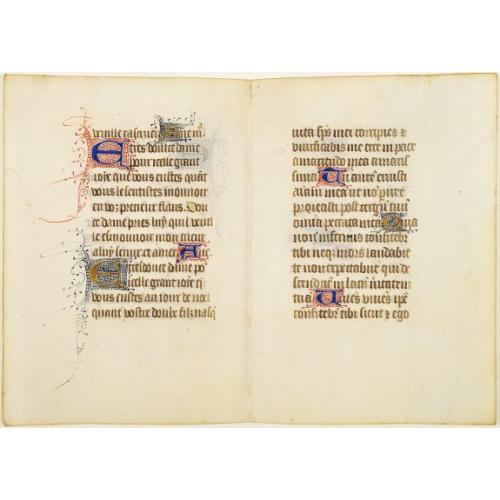 veuille rasazier Aue m
E tres doulce dame
pour icelle grant
ioye que vous eustes quāt
vous le sentistes mouuoir
en voz precieux flans. Dou
ce dame pries luy quil veuil
le esmouuoir mon cueur
a luy seruir et amer Aue.
E tres doulce dame po
icelle grant ioye q̄
vous eustes au iour de noel
quant vostre doulx filz nasq
uita sp̄s mei corripies &
uiuificabis me ecce in pace
amaritudo mea amaris
sima Tu autē eruisti
aīam meā ut nō piret
proiecisti post tergū tuū
omīa peccata mea Quia
non infernus confitebr
tibi neqz mors laudabit
te non expectabūt qui de
scendūt in lacū ueritatem
tuā Viuēs viuēs ipē
confitebr tibi sicut & ego